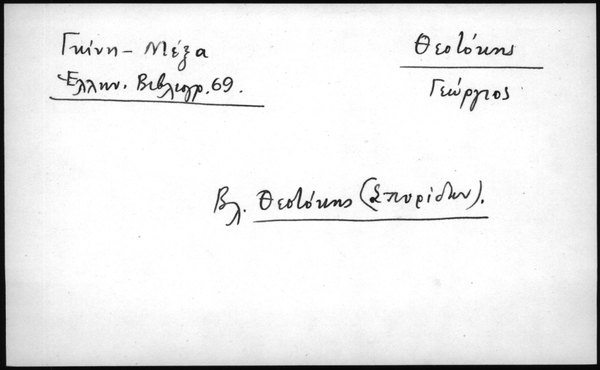 Γκίνη - Μέξα
Ελλην. Βιβλιογρ. 69.
Θεοτόκης
Γεώργιος
Βλ. Θεοτόκης (Σπυρίδων).